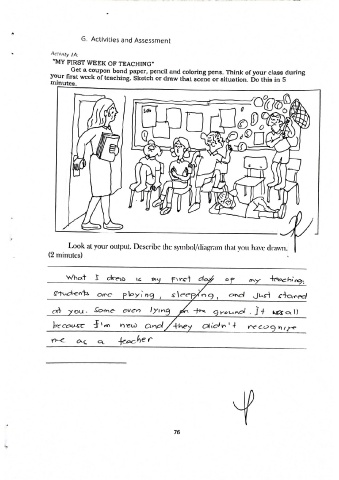 G. Activities and Assessment
Activity 1A
"MY FIRST WEEK OF TEACHING"
Get a coupon bond paper, pencil and coloring pens. Think of your class during
your first week of teaching. Sketch or draw that scene or situation. Do this in 5
minutes.
Look at your output. Describe the symbol/diagram that you have drawn.
(2 minutes)
What I drew is my first day of my teaching.
students are playing, sleeping, and just stared
at you. Some even lying on the ground. It was all
because I'm new and they didn't recognize
me as a teacher
76